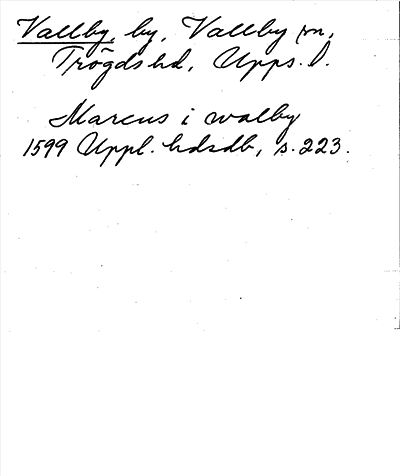 Vallby, by, Vallby sn,
Trögds hd, Upps. l.
Marcus i walby
1599 Uppl. hdsdb, s. 223.